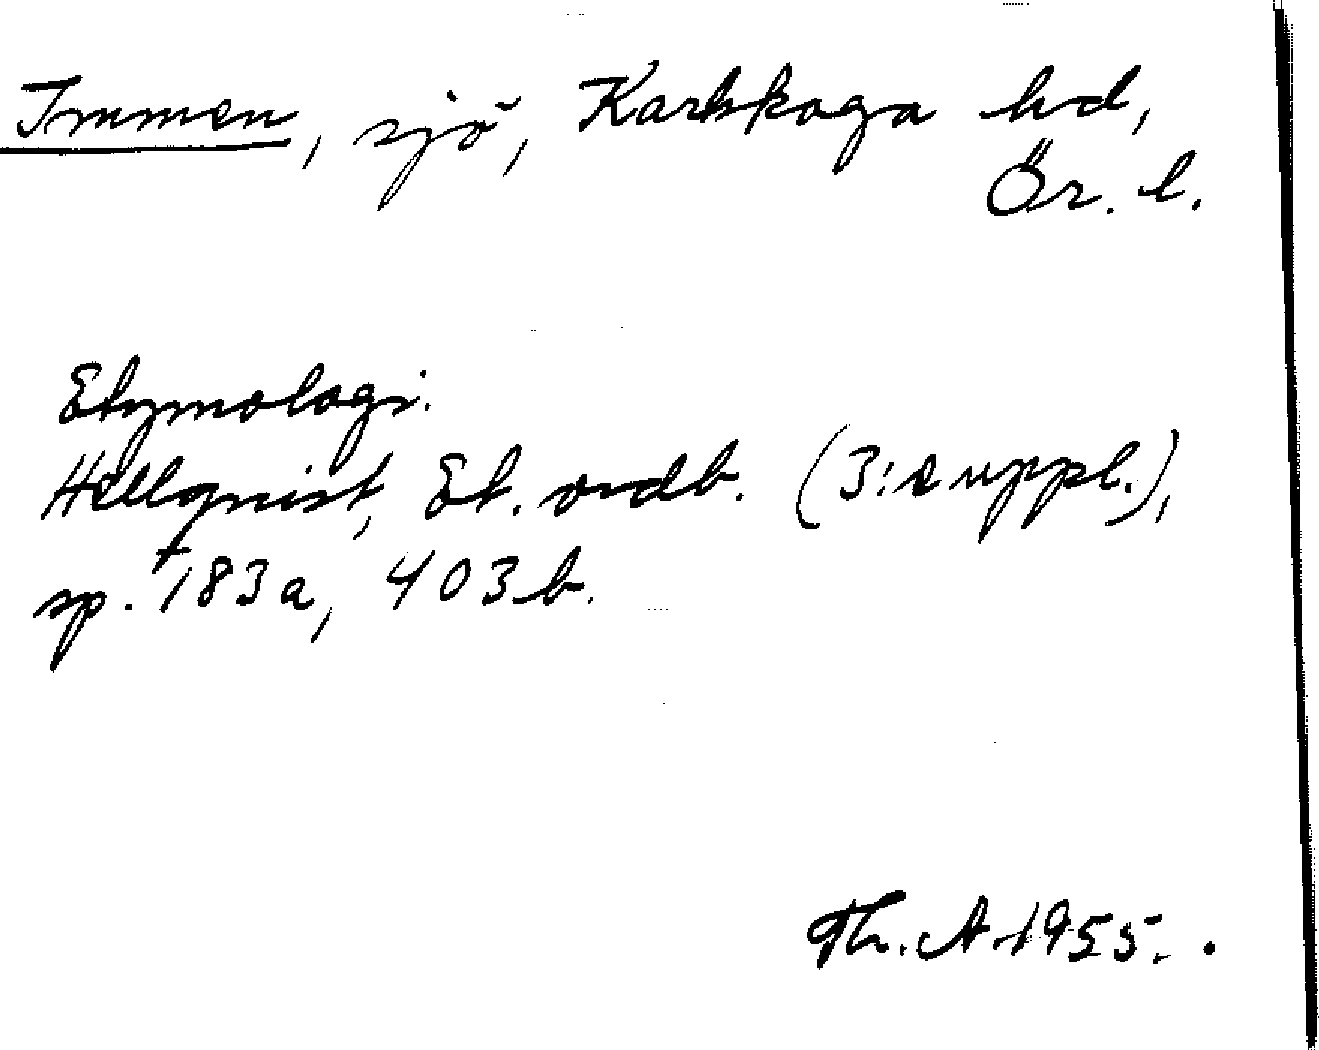 Immen, sjö, Karlskoga hd,
Ör. l.
Etymologi.
Hellquist, Et. ordb. (3: suppl.),
sp. †183a, 403b.
Th. A 1955.